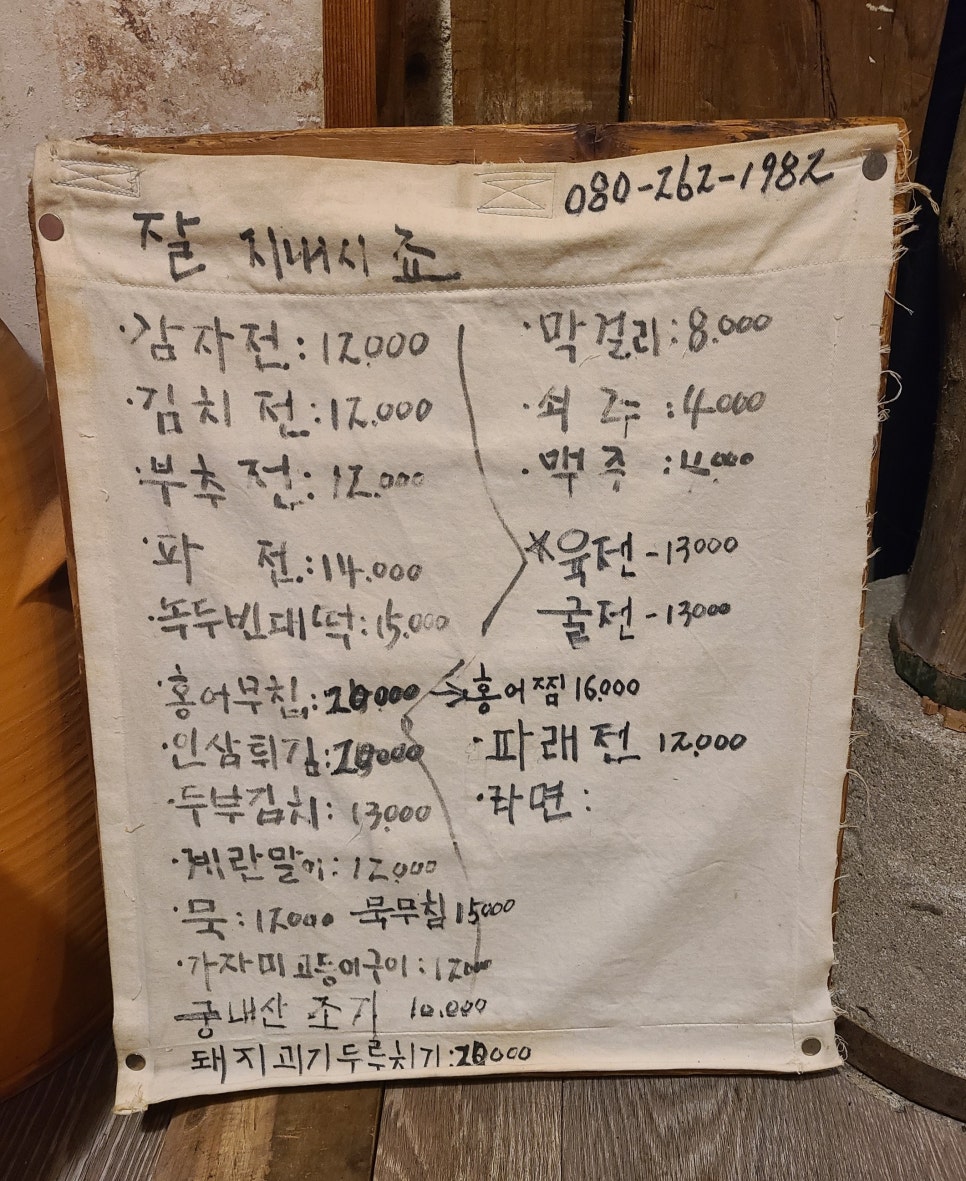 080-262-1982
잘 지내시죠
·감자전:12.000
·김치전:12.000
·부추전:12.000
·파 전:14.000
·녹두빈대떡:15.000
·홍어무침:20000
·인삼튀김:20000
·두부김치:13.000
·계란말이:12.000
·묵:12000 묵무침 15000
·가자미 고등어구이:12000
국내산 조기 10.000
돼지괴기두루치기:20000
·막걸리:8.000
·쇠주:4.000
·맥주:4.000
*육전-13000
굴전-13000
→홍어찜 16.000
·파래전 12.000
·라면: